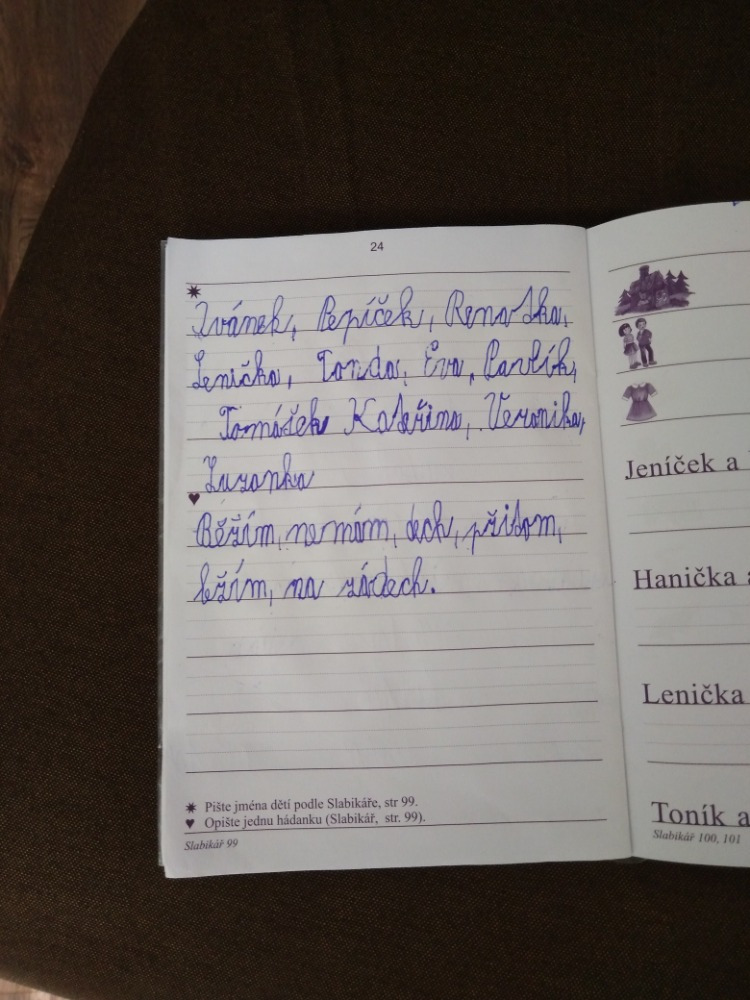 24
Ivánek, Pepíček, Renatka,
Lenička, Tonda, Eva, Pavlík,
Tomášek Kateřina, Veronika,
Zuzanka
Běžím, nemám, dech, přitom,
ležím, na zádech.
Pište jména dětí podle Slabikáře, str 99.
Opište jednu hádanku (Slabikář, str. 99).
Slabikář 99
Jeníček a
Hanička a
Lenička
Toník a
Slabikář 100, 101